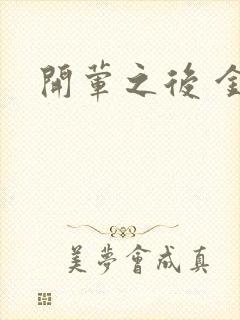 開葷之後
美夢會成真